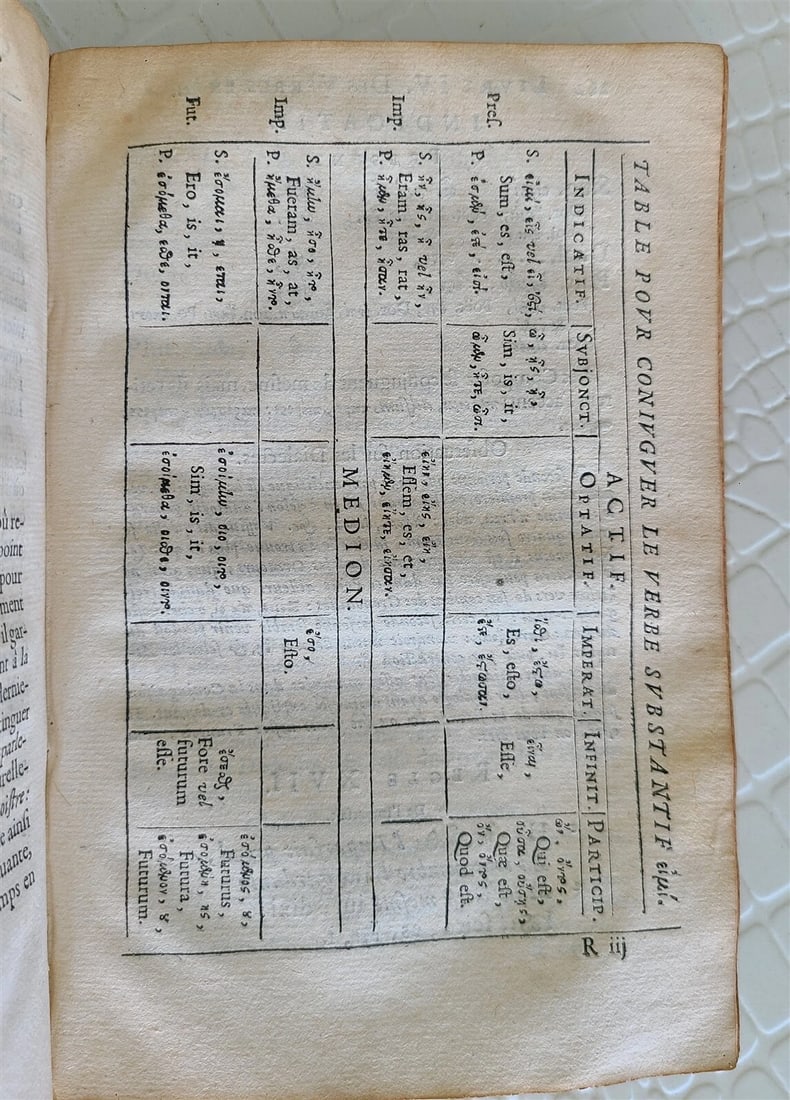 TABLE POVR CONIVGVER LE VERBE SVBSTANTIF εἰμί.
ACTIF.
INDICATIF. SVBJONCT. OPTATIF. IMPERAT. INFINIT. PARTICIP.
Preſ.
S. εἰμί, εἶς vel εἶ, ἐστί,
Sum, es, eſt,
P. ἐσμὲν, ἐστὲ, εἰσί.
ὦ, ᾖς, ᾖ,
Sim, is, it,
ὦμεν, ἦτε, ὦσι.
ἴσθι, ἔστω,
Es, eſto,
ἔστε, ἔστωσαν.
εἶναι,
Eſſe,
ὢν, ὄντος,
Qui eſt,
οὖσα, οὔσης,
Quæ eſt,
ὂν, ὄντος,
Quod eſt.
Imp.
S. ἦν, ἦς, ἦ vel ἦν,
Eram, ras, rat,
P. ἦμεν, ἦτε, ἦσαν.
εἴην, εἴης, εἴη,
Eſſem, es, et,
εἴημεν, εἴητε, εἴησαν.
MEDION.
Imp.
S. ἤμην, ἦσο, ἦτο,
Fueram, as, at,
P. ἤμεθα, ἦσθε, ἦντο.
ἔσο,
Eſto.
Fut.
S. ἔσομαι, ῃ, εται,
Ero, is, it,
P. ἐσόμεθα, εσθε, ονται.
ἐσοίμην, οιο, οιτο,
Sim, is, it,
ἐσοίμεθα, οισθε, οιντο.
ἔσεσθαι,
Fore vel
futurum
eſſe.
ἐσόμενος, ου,
Futurus,
ἐσομένη, ης,
Futura,
ἐσόμενον, ου,
Futurum.
R iij
point
pour
ment
il gar-
à la
dernie-
tinguer
ainſi
mps en